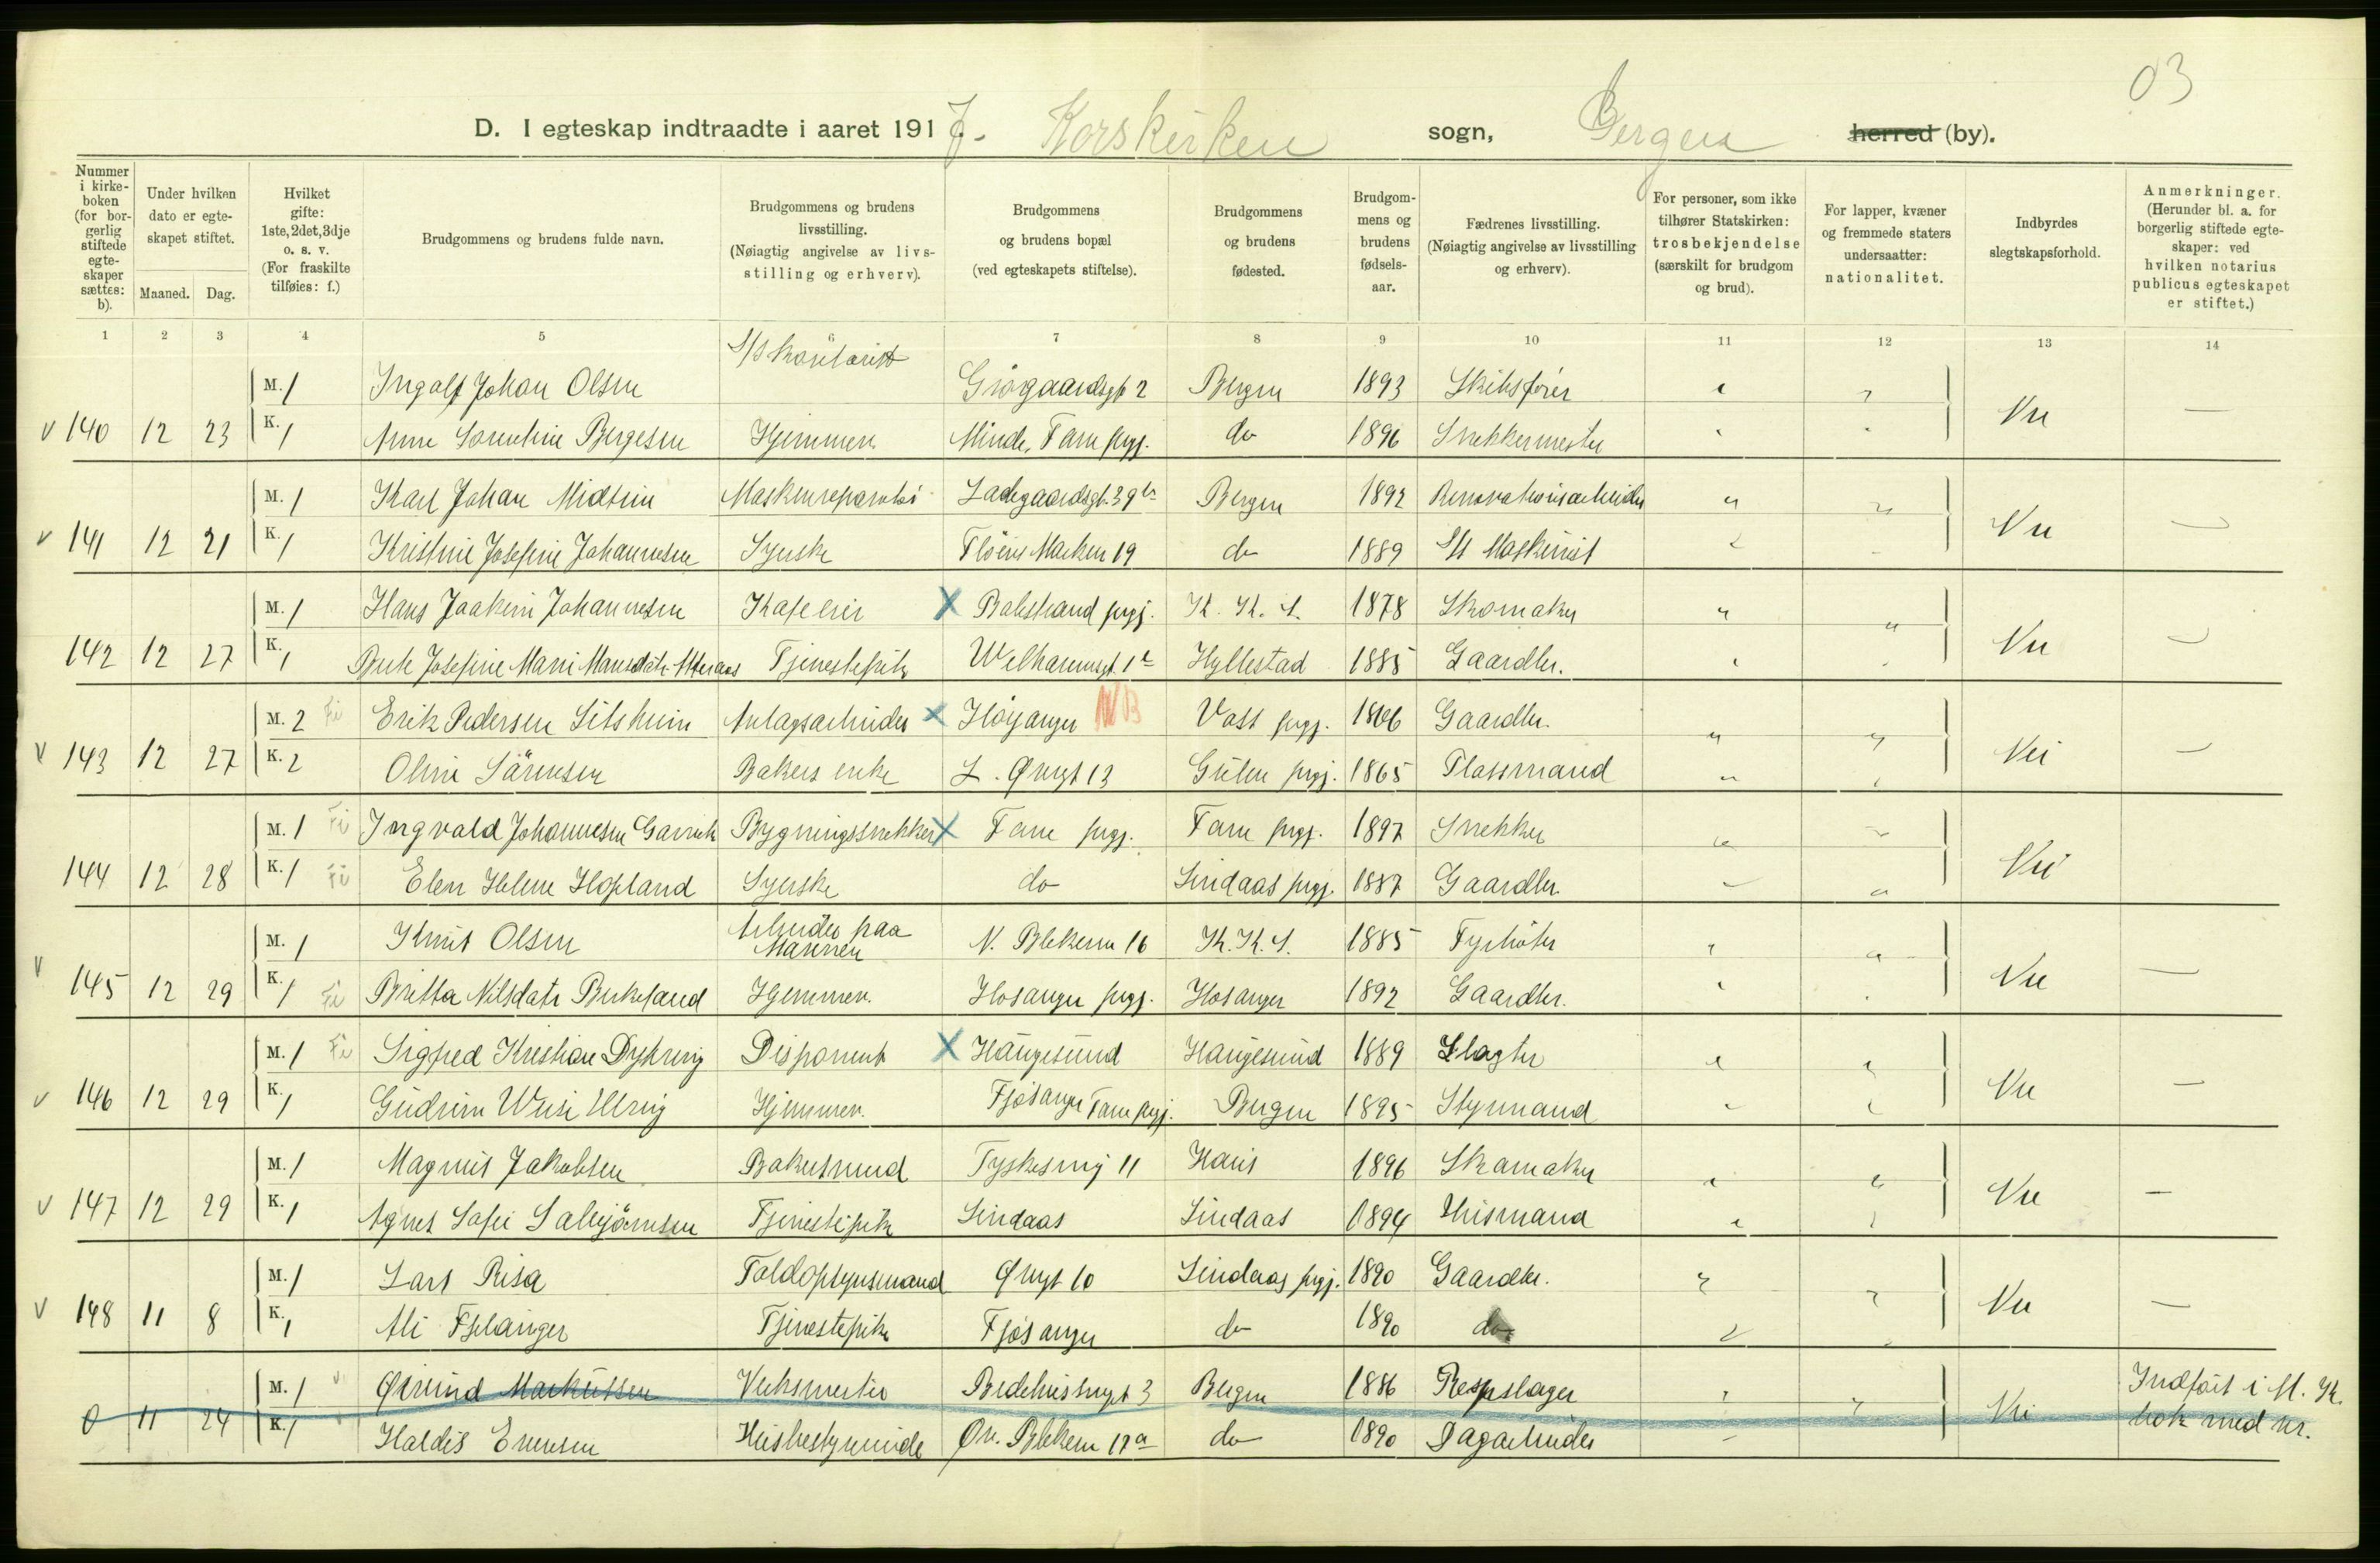 03
D. I egteskap indtraadte i aaret 1917. Korskirken sogn, Bergen herred (by).
Nummer i kirke-boken (for bor-gerlig stiftede egte-skaper sættes: b).
Under hvilken dato er egte-skapet stiftet.
Maaned. Dag.
Hvilket gifte: 1ste, 2det, 3dje o. s. v. (For fraskilte tilføies: f.)
Brudgommens og brudens fulde navn.
Brudgommens og brudens livsstilling. (Nøiagtig angivelse av livs-stilling og erhverv).
Brudgommens og brudens bopæl (ved egteskapets stiftelse).
Brudgommens og brudens fødested.
Brudgom-mens og brudens fødsels-aar.
Fædrenes livsstilling. (Nøiagtig angivelse av livsstilling og erhverv).
For personer, som ikke tilhører Statskirken: trosbekjendelse (særskilt for brudgom og brud).
For lapper, kvæner og fremmede staters undersaatter: nationalitet.
Indbyrdes slegtskapsforhold.
Anmerkninger. (Herunder bl. a. for borgerlig stiftede egte-skaper: ved hvilken notarius publicus egteskapet er stiftet.)
1 2 3 4 5 6 7 8 9 10 11 12 13 14
M. 1 Ingolf Johan Olsen Bergen 1893 Skibsfører " "
v 140 12 23 K. 1 Anne Bergesen Hjemmev. Minde, Fane prgj. do 1896 Snekkermester " " Nei —
M. 1 Karl Johan Midttun Maskinreparatør Ladegaardsgt. 39 Bergen 1892 Renovationsarbeider " "
v 141 12 21 K. 1 Kristine Josefine Johannesen Syerske Fløens Marken 19 do 1889 S/S Maskinist " " Nei —
M. 1 Hans Joakim Johannesen X Balestrand prgj. K. K. S. 1878 Skomaker " "
142 12 27 K. 1 Josefine Tjenestepike Hyllestad 1885 Gaardbr. " " Nei —
M. 2 Fi Erik Pedersen Anlægsarbeider X Høyanger NB Voss prgj. 1866 Gaardbr. " "
v 143 12 27 K. 2 Oline Sørensen Bakers enke L. Øvregt 13 Gulen prgj. 1865 Plassmand " " Nei —
M. 1 Fi Ingvald Johannesen Bygningssnekker X Fane prgj. Fane prgj. 1897 Snekker " "
144 12 28 K. 1 Fi Elen Helene Hopland Syerske do Lindaas prgj. 1887 Gaardbr. " " Nei
M. 1 Knut Olsen Arbeider paa Marinen N. Blekevei 16 K. K. S. 1885 Fyrbøter " "
v 145 12 29 K. 1 Fi Britta Nilsdatr Birkeland Hjemmev. Hosanger prgj. Hosanger 1892 Gaardbr. " " Nei —
M. 1 Fi Sigfred Kristian Disponent X Haugesund Haugesund 1889 Slagter " "
v 146 12 29 K. 1 Gudrun Hjemmev. Fjøsanger Fane prgj. Bergen 1895 Styrmand " " Nei —
M. 1 Magnus Jakobsen Bakersvend Tyskesmug 11 Haus 1896 Skomaker " "
v 147 12 29 K. 1 Agnes Sofie Tjenestepike Lindaas Lindaas 1894 Husmand " " Nei —
M. 1 Lars Risa Toldopsynsmand Øvregt 10 Lindaas prgj. 1890 Gaardbr. " "
v 148 11 8 K. 1 Fjelanger Tjenestepike Fjøsanger do 1890 do " " Nei —
M. 1 Øivind Markussen Verksmester 3 Bergen 1886 Repslager " " Indført i M. K.
0 11 24 K. 1 Haldis Husbestyrerinde Øv. Blekevei 17a do 1890 Dagarbeider " Nei bok med nr.